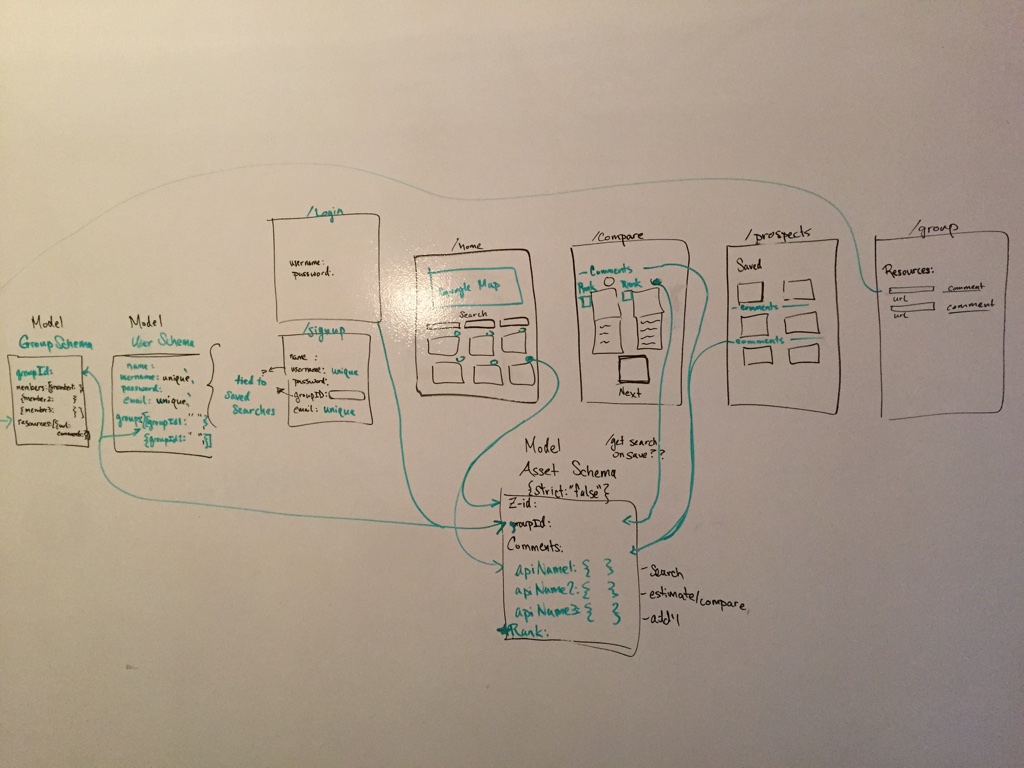 Model
GroupSchema
groupId:
members:[{member1: }
{member2: }
{member3: }]
resources:[{url:
comments:}]
Model
User Schema
name:
username: unique,
password:
email: unique,
groups[{groupId1: " "}
{groupId1: " "}]
tied to
saved
searches
/Login
username:
password:
/signup
name :
username: unique
password:
groupID:
email: unique
/home
Google Map
Search
/Compare
- Comments
Rank
Rank
Next
/prospects
Saved
comments
comments
/group
Resources:
comment
url
comment
url
/get search
on save??
Model
Asset Schema
{strict:"false"}
Z-id:
groupId:
Comments:
apiName1: { }
apiName2: { }
apiName3: { }
Rank:
- Search
- estimate/compare,
- add'l